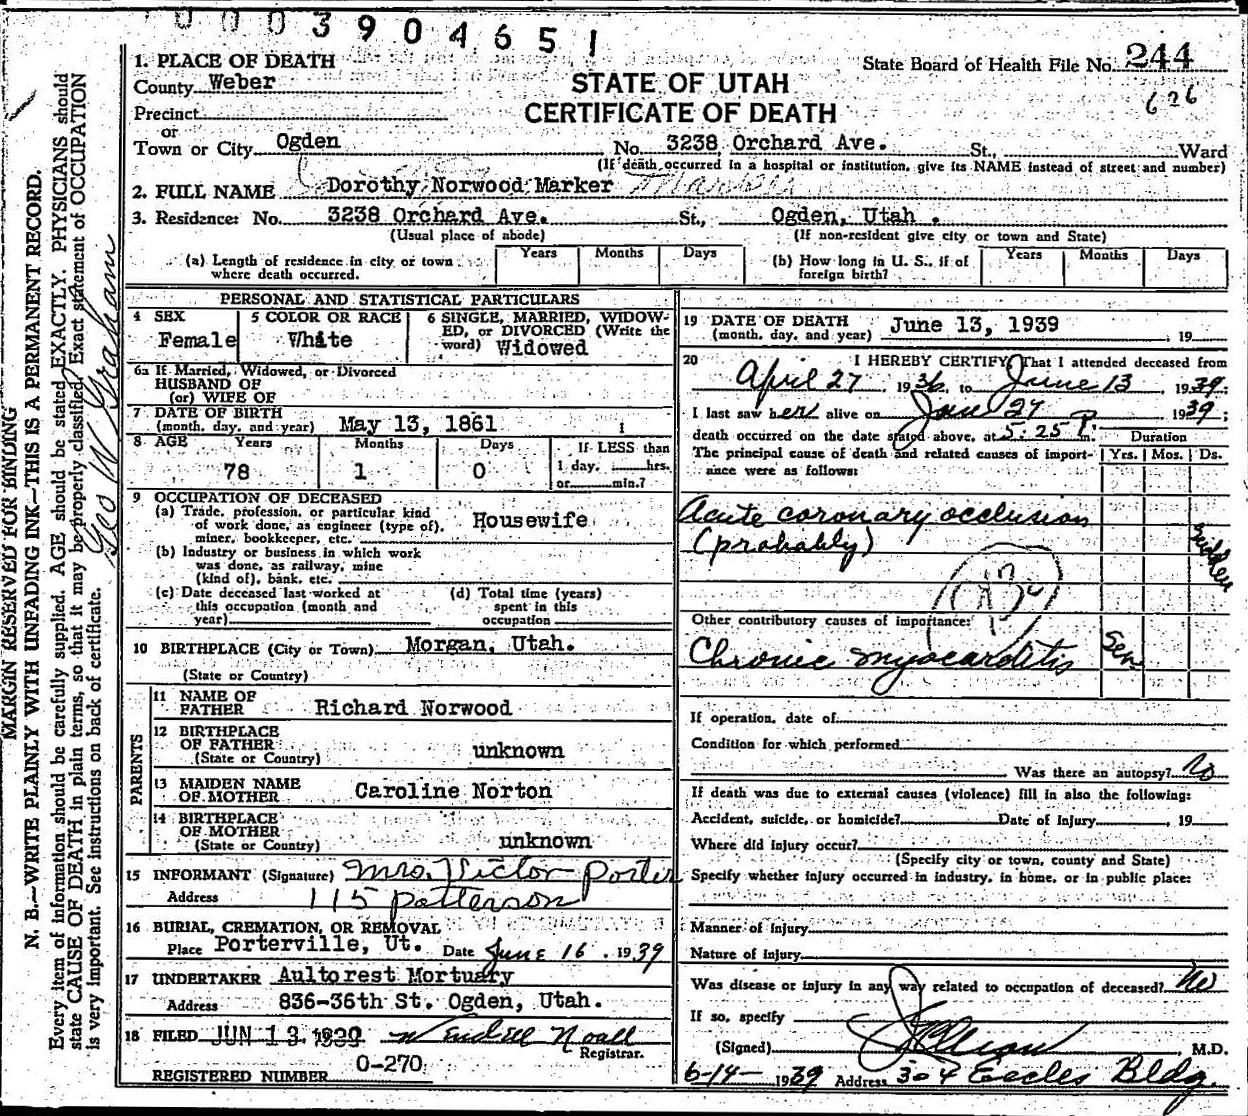 0003904651
1. PLACE OF DEATH
County Weber
Precinct
or
Town or City Ogden No. 3238 Orchard Ave. St., Ward
(If death occurred in a hospital or institution, give its NAME instead of street and number)
STATE OF UTAH
CERTIFICATE OF DEATH
State Board of Health File No. 244
626
2. FULL NAME Dorothy Norwood Marker
3. Residence: No. 3238 Orchard Ave. St., Ogden, Utah.
(Usual place of abode) (If non-resident give city or town and State)
(a) Length of residence in city or town where death occurred. Years Months Days
(b) How long in U. S., if of foreign birth? Years Months Days
PERSONAL AND STATISTICAL PARTICULARS
4 SEX
Female
5 COLOR OR RACE
White
6 SINGLE, MARRIED, WIDOW-
ED, or DIVORCED (Write the
word) Widowed
6a If Married, Widowed, or Divorced
HUSBAND OF
(or) WIFE OF
7 DATE OF BIRTH
(month, day, and year) May 13, 1861
8 AGE Years Months Days If LESS than
78 1 0 1 day, hrs.
or min.?
9 OCCUPATION OF DECEASED
(a) Trade, profession, or particular kind
of work done, as engineer (type of), Housewife
miner, bookkeeper, etc.
(b) Industry or business in which work
was done, as railway, mine
(kind of), bank, etc.
(c) Date deceased last worked at
this occupation (month and
year)
(d) Total time (years)
spent in this
occupation
10 BIRTHPLACE (City or Town) Morgan, Utah.
(State or Country)
PARENTS
11 NAME OF
FATHER Richard Norwood
12 BIRTHPLACE
OF FATHER unknown
(State or Country)
13 MAIDEN NAME
OF MOTHER Caroline Norton
14 BIRTHPLACE
OF MOTHER unknown
(State or Country)
15 INFORMANT (Signature) Mrs. Victor Porter
Address 115 Patterson
16 BURIAL, CREMATION, OR REMOVAL
Place Porterville, Ut. Date June 16, 1939
17 UNDERTAKER Aultorest Mortuary
Address 836-36th St. Ogden, Utah.
18 FILED JUN 13 1939 Wendell Noall
Registrar.
REGISTERED NUMBER 0-270
19 DATE OF DEATH
(month, day, and year) June 13, 1939 19
20 I HEREBY CERTIFY, That I attended deceased from
April 27, 1936 to June 13, 1939;
I last saw her alive on June 27 1939;
death occurred on the date stated above, at 5:25 P. m.
The principal cause of death and related causes of import-
ance were as follows:
Duration
Yrs. Mos. Ds.
Acute coronary occlusion
(probably) Sudden
Other contributory causes of importance:
Chronic myocarditis Sev
If operation, date of
Condition for which performed
Was there an autopsy? No
If death was due to external causes (violence) fill in also the following:
Accident, suicide, or homicide? Date of Injury , 19
Where did injury occur?
(Specify city or town, county and State)
Specify whether injury occurred in industry, in home, or in public place:
Manner of Injury
Nature of Injury
Was disease or injury in any way related to occupation of deceased? No
If so, specify
(Signed) M.D.
6-14- 1939 Address 304 Eccles Bldg.
MARGIN RESERVED FOR BINDING
N. B.—WRITE PLAINLY WITH UNFADING INK—THIS IS A PERMANENT RECORD.
Every item of information should be carefully supplied. AGE should be stated EXACTLY. PHYSICIANS should
state CAUSE OF DEATH in plain terms, so that it may be properly classified. Exact statement of OCCUPATION
is very important. See instructions on back of certificate.
Geo W Graham